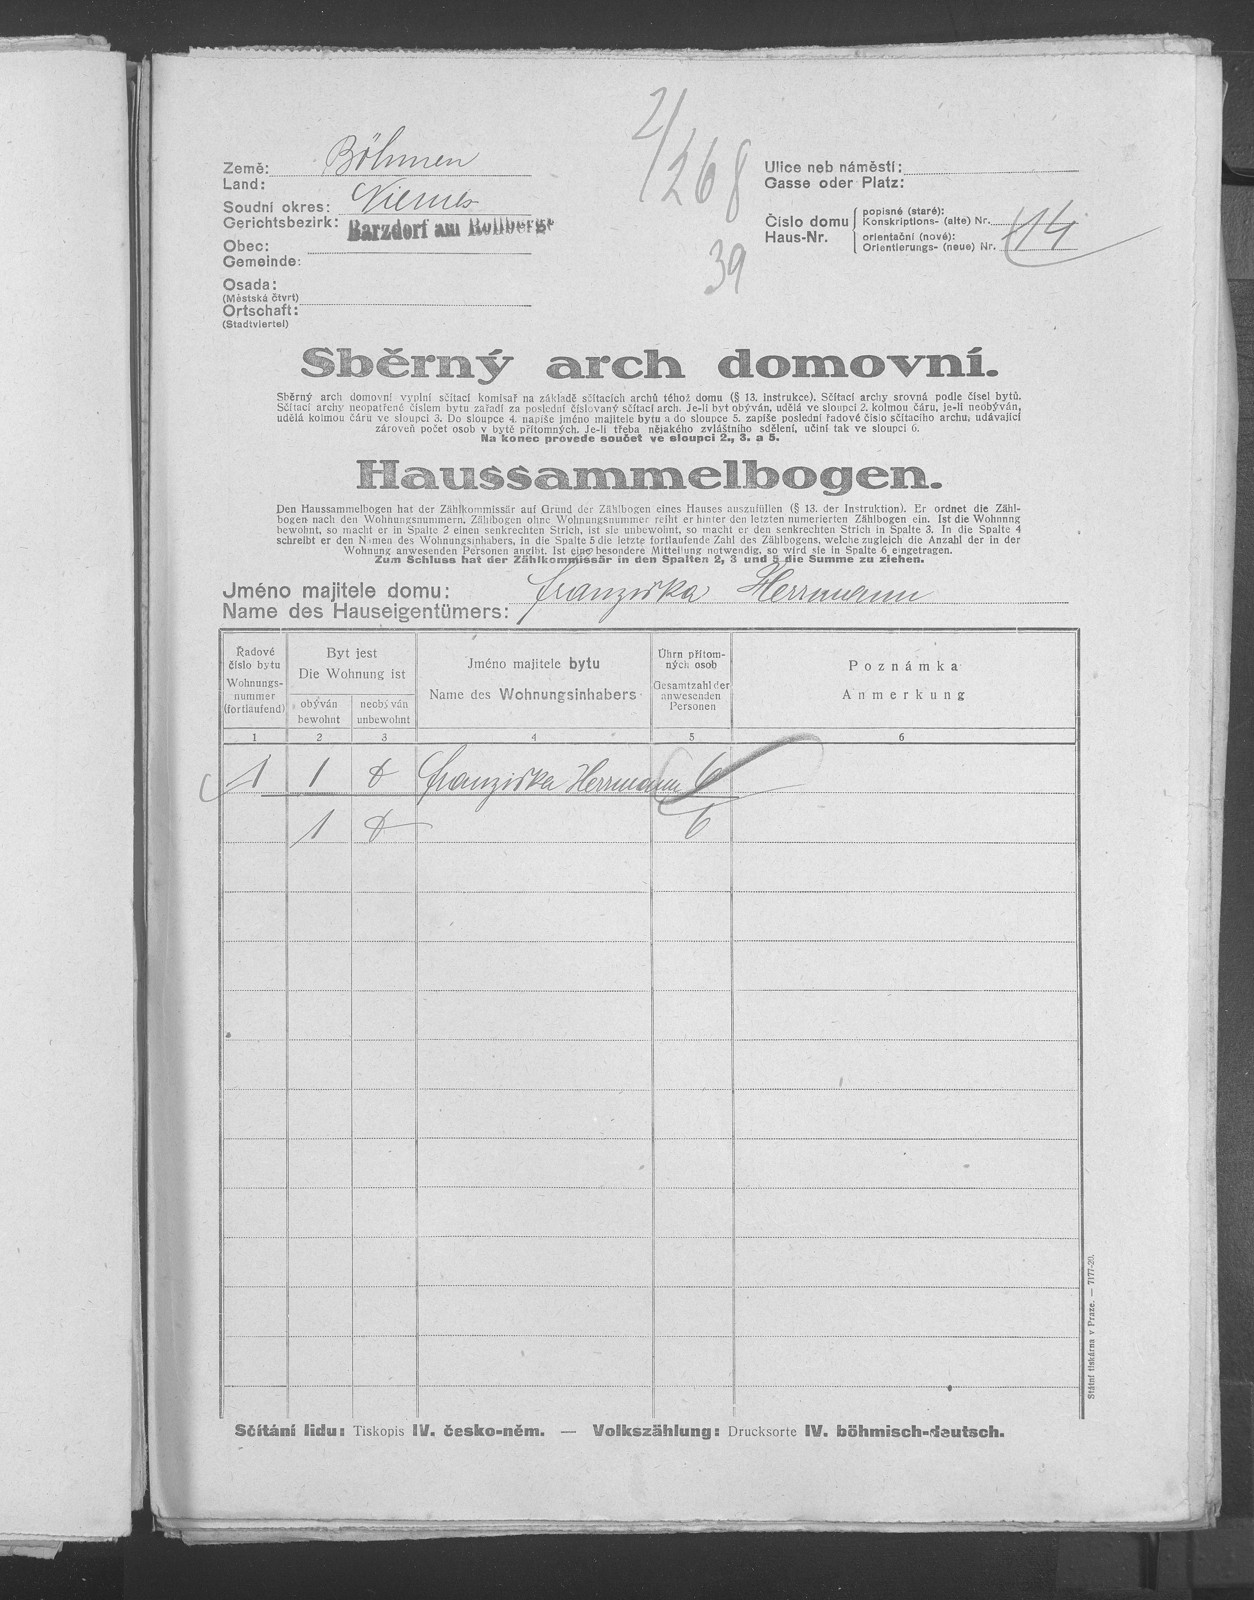 2/268
39
Země: Böhmen
Land:
Soudní okres: Niemes
Gerichtsbezirk: Barzdorf am Rollberge
Obec:
Gemeinde:
Osada:
(Městská čtvrť)
Ortschaft:
(Stadtviertel)
Ulice neb náměstí:
Gasse oder Platz:
Číslo domu
Haus-Nr.
popisné (staré):
Konskriptions- (alte) Nr.
orientační (nové):
Orientierungs- (neue) Nr.
14
Sběrný arch domovní.
Sběrný arch domovní vyplní sčítací komisař na základě sčítacích archů téhož domu (§ 13. instrukce). Sčítací archy srovná podle čísel bytů.
Sčítací archy neopatřené číslem bytu zařadí za poslední číslovaný sčítací arch. Je-li byt obýván, udělá ve sloupci 2. kolmou čáru, je-li neobýván,
udělá kolmou čáru ve sloupci 3. Do sloupce 4. napíše jméno majitele bytu a do sloupce 5. zapíše poslední řadové číslo sčítacího archu, udávající
zároveň počet osob v bytě přítomných. Je-li třeba nějakého zvláštního sdělení, učiní tak ve sloupci 6.
Na konec provede součet ve sloupci 2., 3. a 5.
Haussammelbogen.
Den Haussammelbogen hat der Zählkommissär auf Grund der Zählbogen eines Hauses auszufüllen (§ 13. der Instruktion). Er ordnet die Zähl-
bogen nach den Wohnungsnummern, Zählbogen ohne Wohnungsnummer reiht er hinter den letzten numerierten Zählbogen ein. Ist die Wohnnng
bewohnt, so macht er in Spalte 2 einen senkrechten Strich, ist sie unbewohnt, so macht er den senkrechten Strich in Spalte 3. In die Spalte 4
schreibt er den Namen des Wohnungsinhabers, in die Spalte 5 die letzte fortlaufende Zahl des Zählbogens, welche zugleich die Anzahl der in der
Wohnung anwesenden Personen angibt. Ist eine besondere Mitteilung notwendig, so wird sie in Spalte 6 eingetragen.
Zum Schluss hat der Zählkommissär in den Spalten 2, 3 und 5 die Summe zu ziehen.
Jméno majitele domu: Franziska Herrmann
Name des Hauseigentümers:
Řadové
číslo bytu
Wohnungs-
nummer
(fortlaufend)
Byt jest
Die Wohnung ist
obýván
bewohnt
neobýván
unbewohnt
Jméno majitele bytu
Name des Wohnungsinhabers
Úhrn přítom-
ných osob
Gesamtzahl der
anwesenden
Personen
Poznámka
Anmerkung
1 2 3 4 5 6
1 1 Franziska Herrmann 6
1 6
Státní tiskárna v Praze. — 7177-20.
Sčítání lidu: Tiskopis IV. česko-něm. — Volkszählung: Drucksorte IV. böhmisch-deutsch.